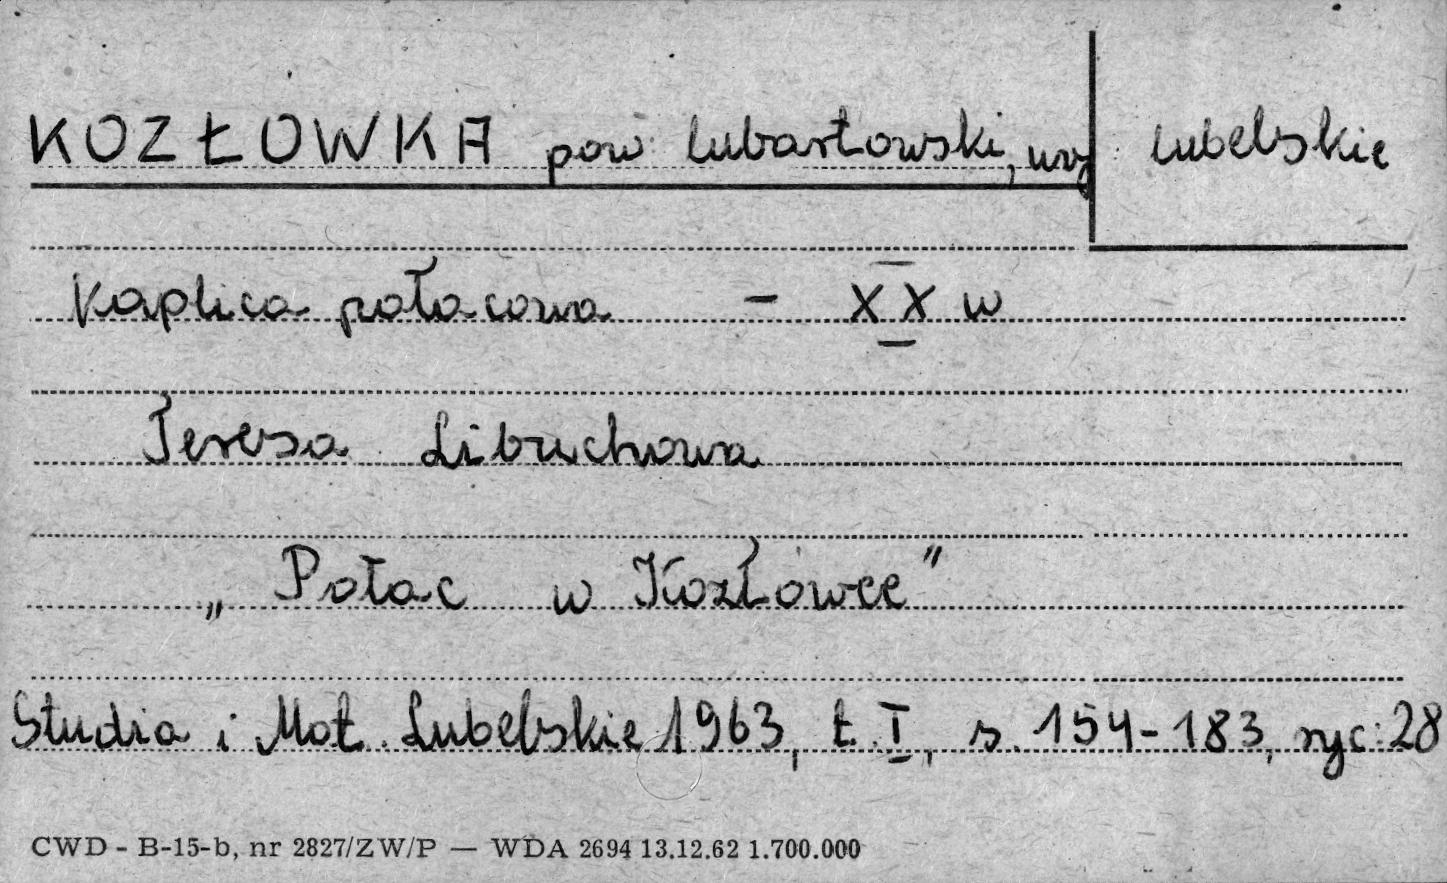 KOZŁÓWKA pow. lubartowski, woj. lubelskie
Kaplica pałacowa - XX w
Teresa Libruchowa
„Pałac w Kozłówce”
Studia i Mat. Lubelskie 1963, t. I, s. 154-183, ryc: 28
CWD - B-15-b, nr 2827/ZW/P — WDA 2694 13.12.62 1.700.000